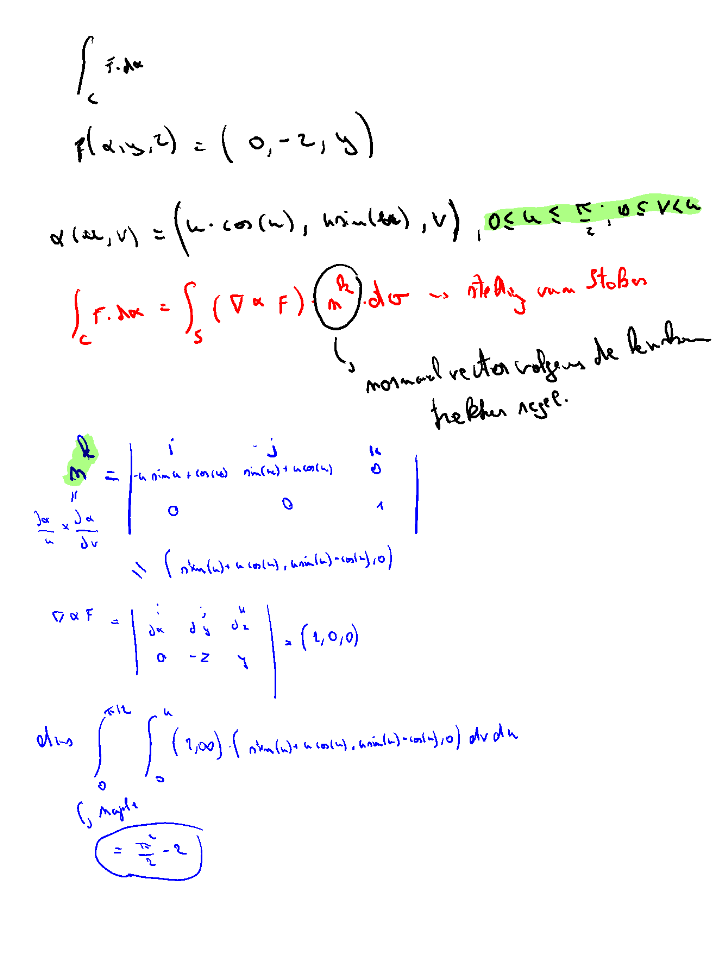 ∫_C F.dα
F(x,y,z) = (0,-z,y)
α(u,v) = (u·cos(u), u sin(u), v), 0≤u≤π/2; 0≤v<u
∫_C F.dα = ∫_S (∇ x F)·n·dσ → stelling van Stokes
↳ normaal vector volgens de
trekker regel.
n = | i -j k
-u sin u + cos(u) sin(u)+u cos(u) 0
∂α/u x ∂α/∂v
0 0 1 |
= (sin(u)+u cos(u), u sin(u)-cos(u), 0)
∇ x F = | i j k
dx dy dz
0 -z y | = (2,0,0)
dus ∫_0^{π/2} ∫_0^u (2,0,0)·(sin(u)+u cos(u), u sin(u)-cos(u), 0) dv du
↳ Maple
= π²/2 - 2